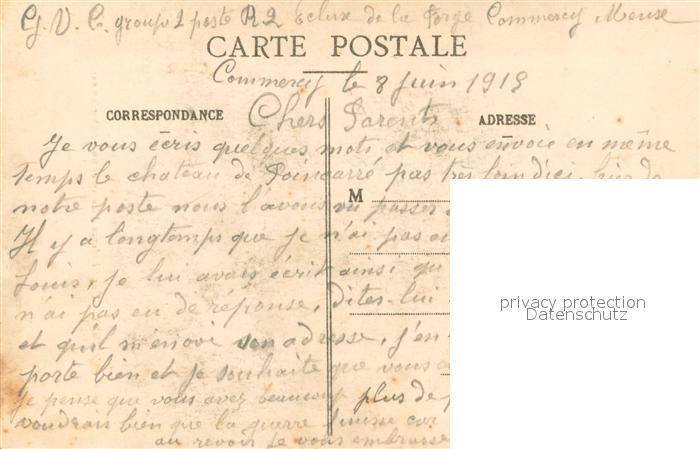 G. V. C. groupe 2 poste R 2 Ecluse de la Forge Commercy Meuse
CARTE POSTALE
Commercy le 8 juin 1915
CORRESPONDANCE
Chers Parents
ADRESSE
Je vous écris quelques mots et vous envoie en même
temps le chateau de Poincarré pas tres loin d'ici, hier de
M
notre poste nous l'avons vu passer
Il y a longtemps que je n'ai pas eu
Louis, je lui avais écrit ainsi qu
privacy protection
Datenschutz
n'ai pas eu de réponse, dites-lui
et qu'il m'envoi son adresse, j'en
porte bien et je souhaite que vous
Je pense que vous avez beaucoup plus de
voudrais bien que la guerre finisse car
au revoir Je vous embrasse